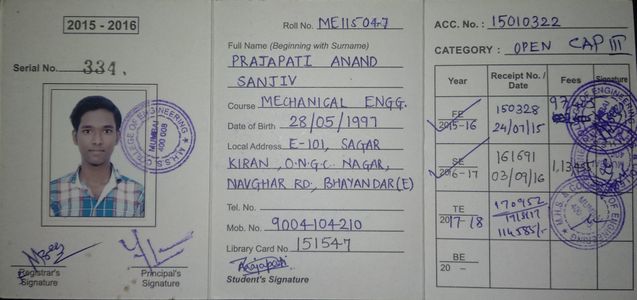 2015 - 2016
Serial No. 334.
COLLEGE OF ENGINEERING
MUMBAI
400 008
Registrar's Signature
Principal's Signature
Roll No. ME115047
Full Name (Beginning with Surname)
PRAJAPATI ANAND
SANJIV
Course MECHANICAL ENGG.
Date of Birth 28/05/1997
Local Address E-101, SAGAR
KIRAN, O.N.G.C. NAGAR,
NAVGHAR RD, BHAYANDAR(E)
Tel. No.
Mob. No. 9004104210
Library Card No. 151547
Student's Signature
ACC. No. : 15010322
CATEGORY : OPEN CAP III
Year Receipt No. / Date Fees Signature
FE 2015-16 150328 24/07/15
SE 2016-17 161691 03/09/16
TE 2017-18 170952
BE 20 -